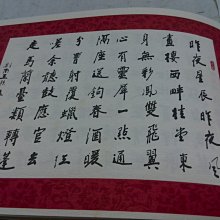 昨夜星辰昨夜風
畫樓西畔桂堂東
身無彩鳳雙飛翼
心有靈犀一點通
隔座送鈎春酒暖
分曹射覆蠟燈紅
嗟余聽鼓應官去
走馬蘭臺類轉蓬